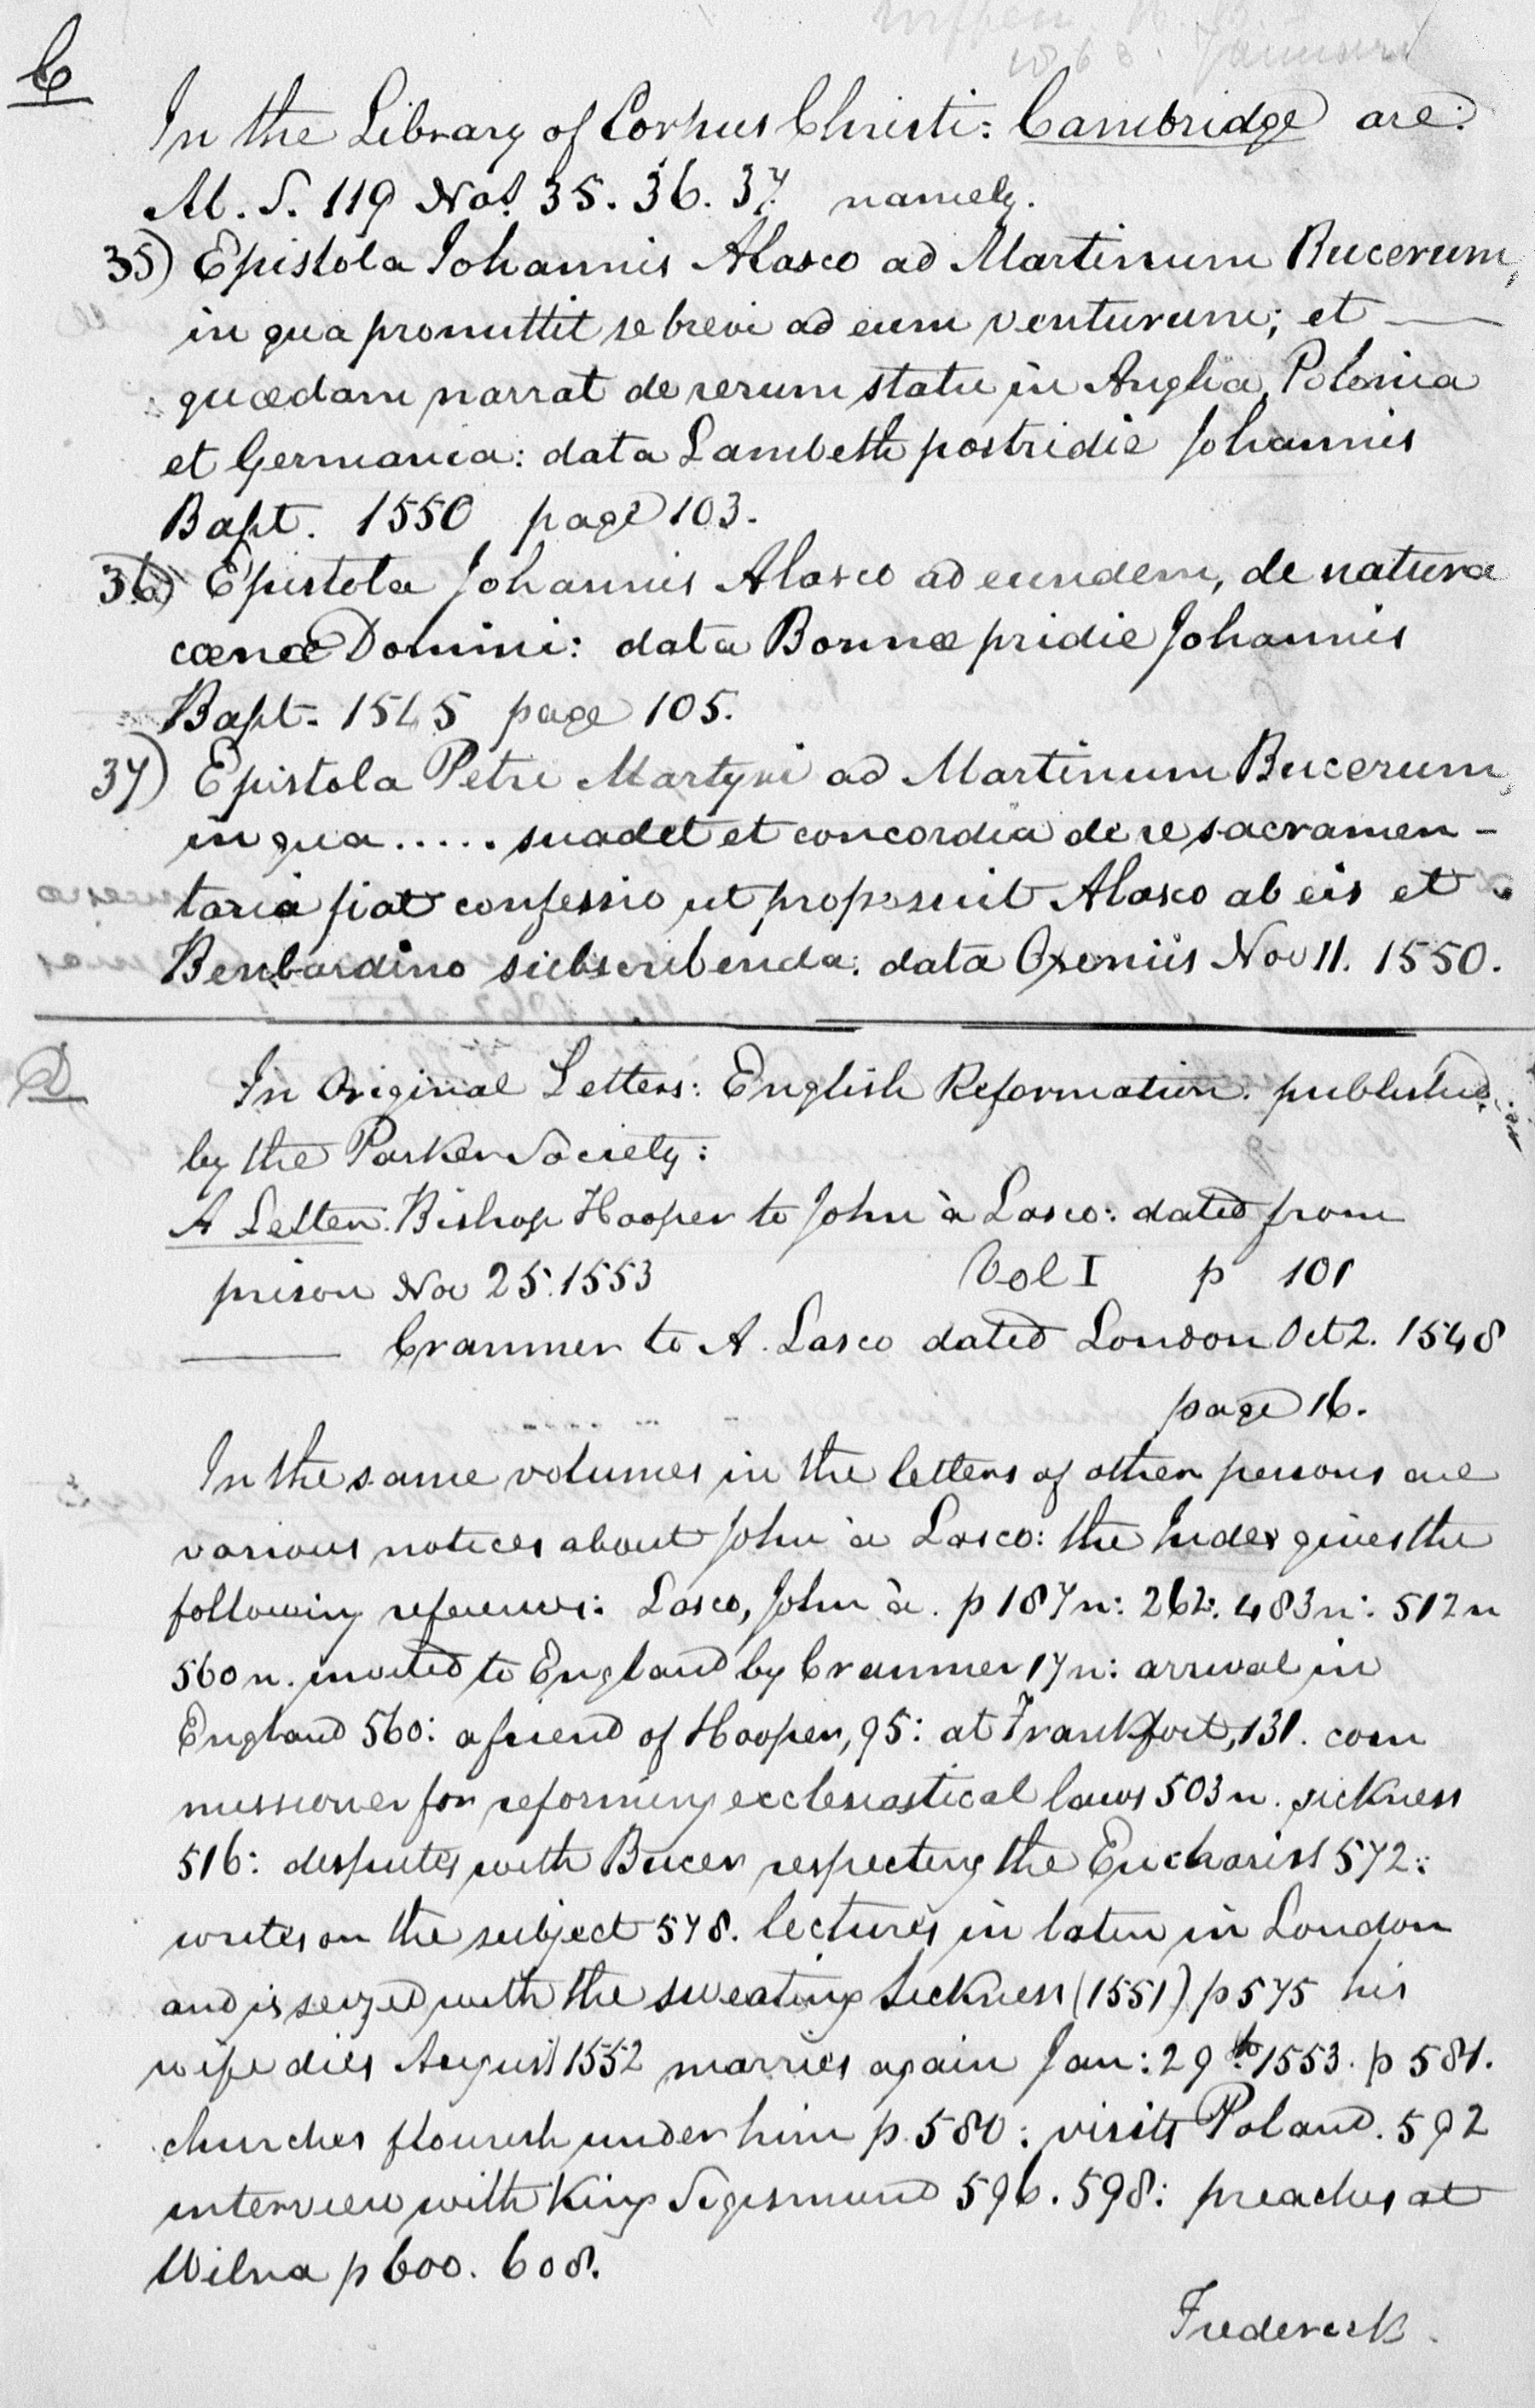 C
In the Library of Corpus Christi: Cambridge are:
M.S. 119 Nos. 35. 36. 37. namely.
35) Epistola Johannis Alasco ad Martinum Bucerum,
in qua promittit se brevi ad eum venturum; et —
quædam narrat de rerum statu in Anglia, Polonia
et Germania: data Lambeth postridie Johannis
Bapt. 1550 page 103.
36) Epistola Johannis Alasco ad eundem, de natura
cœnæ Domini: data Bonnæ pridie Johannis
Bapt. 1545 page 105.
37) Epistola Petri Martyri ad Martinum Bucerum,
in qua ..... suadet et concordia de re sacramen-
taria fiat confessio ut proposuit Alasco ab eis et
Benbardino subscribenda: data Oxeniis Nov 11. 1550.
D
In Original Letters: English Reformation. published
by the Parker Society:
A Letter. Bishop Hooper to John à Lasco: dated from
prison Nov 25. 1553 Vol I p 101
—— Cranmer to A. Lasco dated London Oct 2. 1548
page 16.
In the same volumes in the letters of other persons are
various notices about John à Lasco: the Index gives the
following references: Lasco, John à. p 187n: 262: 483n: 512n
560n. invited to England by Cranmer 17n: arrival in
England 560: a friend of Hooper, 95: at Frankfort, 131. com
missioner for reforming ecclesiastical laws 503n. sickness
516: disputes with Bucer respecting the Eucharist 572:
writes on the subject 578. lectures in latin in London
and is seized with the sweating sickness (1551) p 575 his
wife dies August 1552 marries again Jan: 29th 1553. p 581.
churches flourish under him p. 580: visits Poland. 592
interview with King Sigismund 596. 598: preaches at
Wilna p 600. 608.
Frederick.